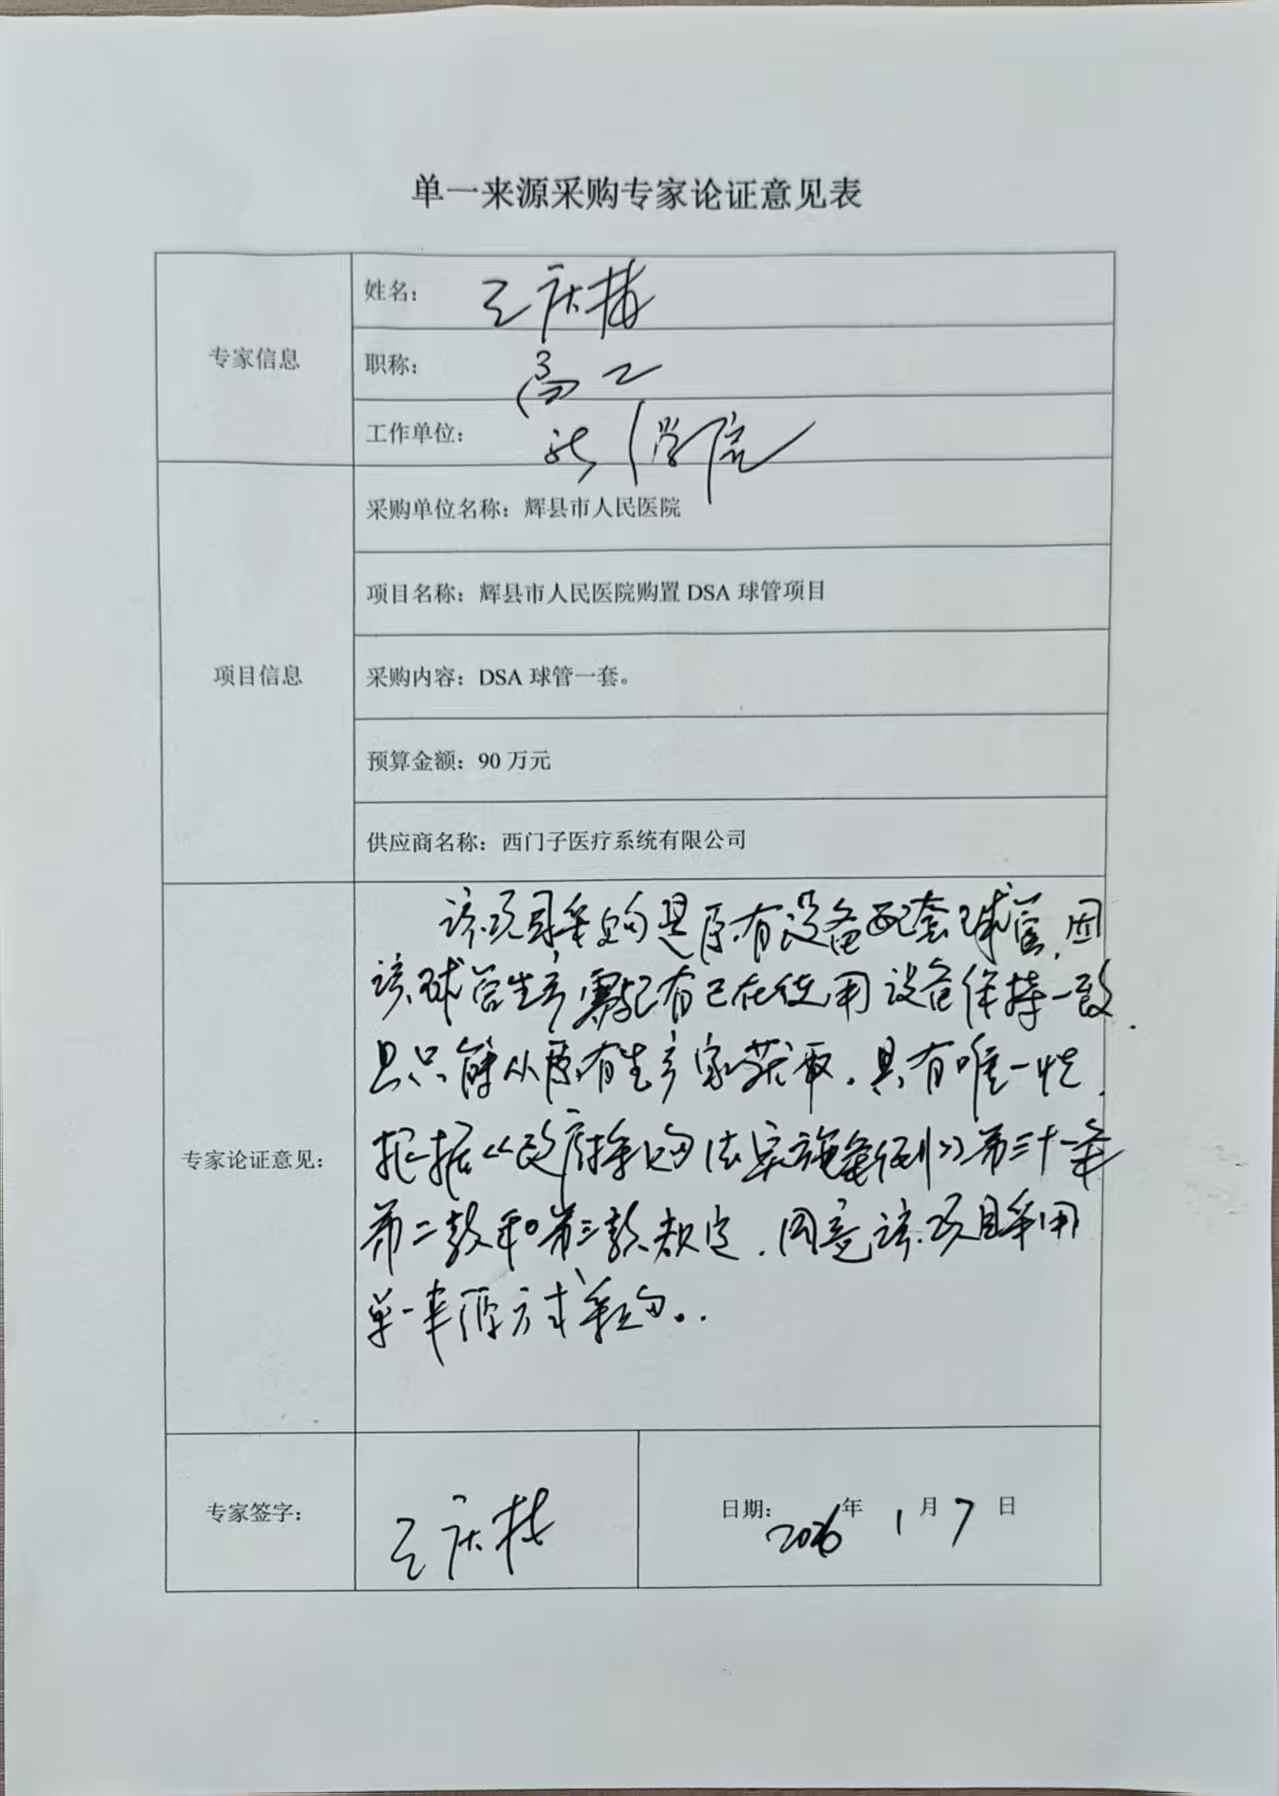 单一来源采购专家论证意见表
专家信息
姓名: 王庆
职称: 高工
工作单位: 学院
项目信息
采购单位名称: 辉县市人民医院
项目名称: 辉县市人民医院购置 DSA 球管项目
采购内容: DSA 球管一套。
预算金额: 90 万元
供应商名称: 西门子医疗系统有限公司
专家论证意见:
该项目采购是原有设备配套球管,因
该球管生产需和有已在使用设备保持一致,
且只能从原有生产家获取,具有唯一性,
根据《政府采购法实施条例》第三十一条
第二款和第三款规定,同意该项目采用
单一来源方式采购。
专家签字: 王庆
日期: 2026年 1月 7日